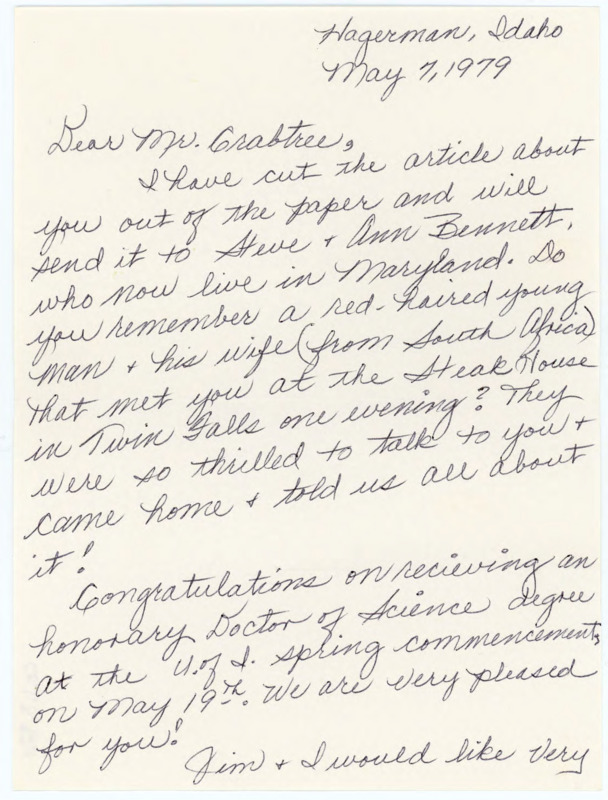 Hagerman, Idaho
May 7, 1979
Dear Mr. Crabtree,
I have cut the article about
you out of the paper and will
send it to Steve + Ann Bennett,
who now live in Maryland. Do
you remember a red-haired young
man + his wife (from South Africa)
that met you at the Steak House
in Twin Falls one evening? They
were so thrilled to talk to you +
came home + told us all about
it!
Congratulations on recieving an
honorary Doctor of Science degree
at the U. of I. spring commencements
on May 19th. We are very pleased
for you!
Jim + I would like very